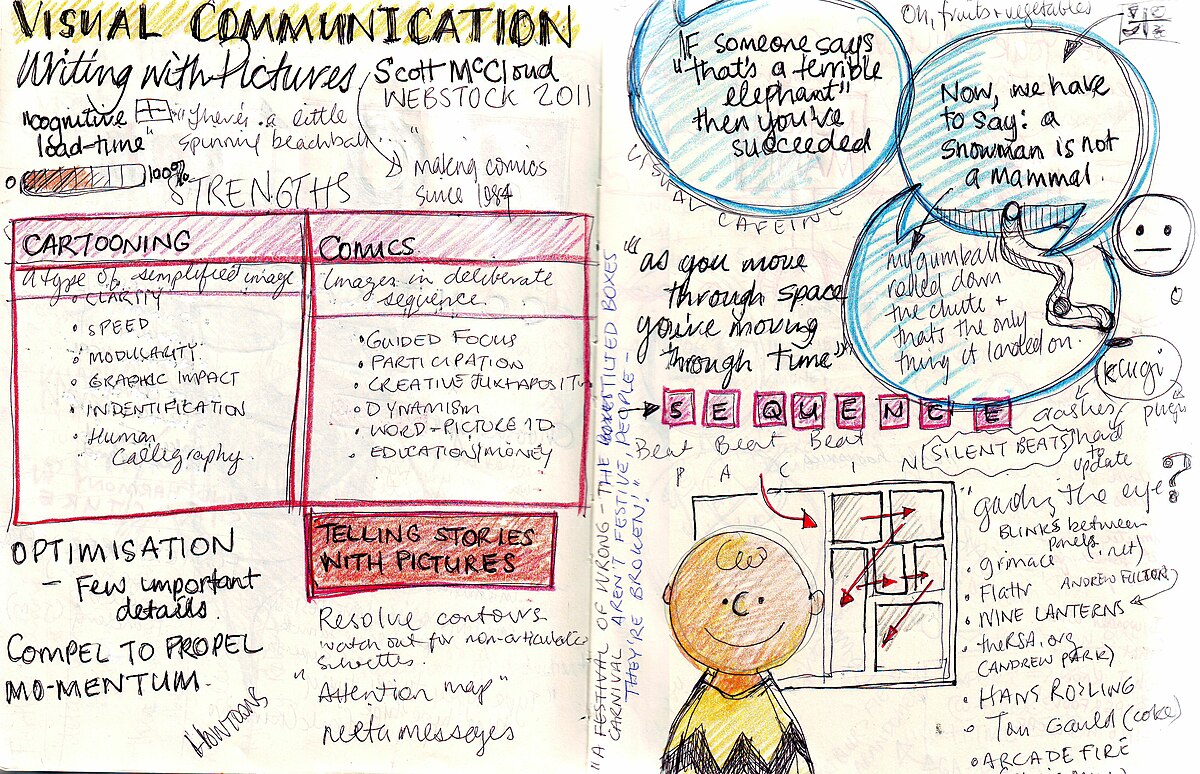 VISUAL COMMUNICATION
Writing with Pictures
Scott McCloud
WEBSTOCK 2011
"cognitive
load-time"
"There's a little
spinning beachball..."
0
100%
making comics
since 1984
STRENGTHS
CARTOONING
A type of simplified image
CLARITY
SPEED
MODULARITY
GRAPHIC IMPACT
INDENTIFICATION
Human
Calligraphy.
COMICS
Images in deliberate
sequence.
GUIDED FOCUS
PARTICIPATION
CREATIVE JUXTAPOSIT
DYNAMISM
WORD-PICTURE
EDUCATION/MONEY
OPTIMISATION
- Few important
details.
COMPEL TO PROPEL
MO-MENTUM.
Howtoons
TELLING STORIES
WITH PICTURES
Resolve contours
watch out for non-articulate
"Attention map"
messages
"A FESTIVAL OF WRONG - THE TILTED BOXES
CARNIVAL AREN'T FESTIVE, PEOPLE -
THEY'RE BROKEN!"
"IF someone says
"that's a terrible
elephant"
then you've
succeeded
VISUAL CAFEINE
Oh, fruits + vegetables
Now, we have
to say: a
snowman is not
a mammal.
my gumball
rolled down
the chute +
thats the only
thing it landed on.
"as you move
through space
you're moving
through time"
SEQUENCE
Beat Beat Beat
SILENT BEATS
PACIN
klugi
crashes
plugin
hard
to
update
the eye?
BLINKS between
panels
grimace (.net)
Flattr
ANDREW FULTON
NINE LANTERNS
theRSA.org
(ANDREW PARK)
HANS ROSLING
Tom Gauld (coke)
ARCADE FIRE